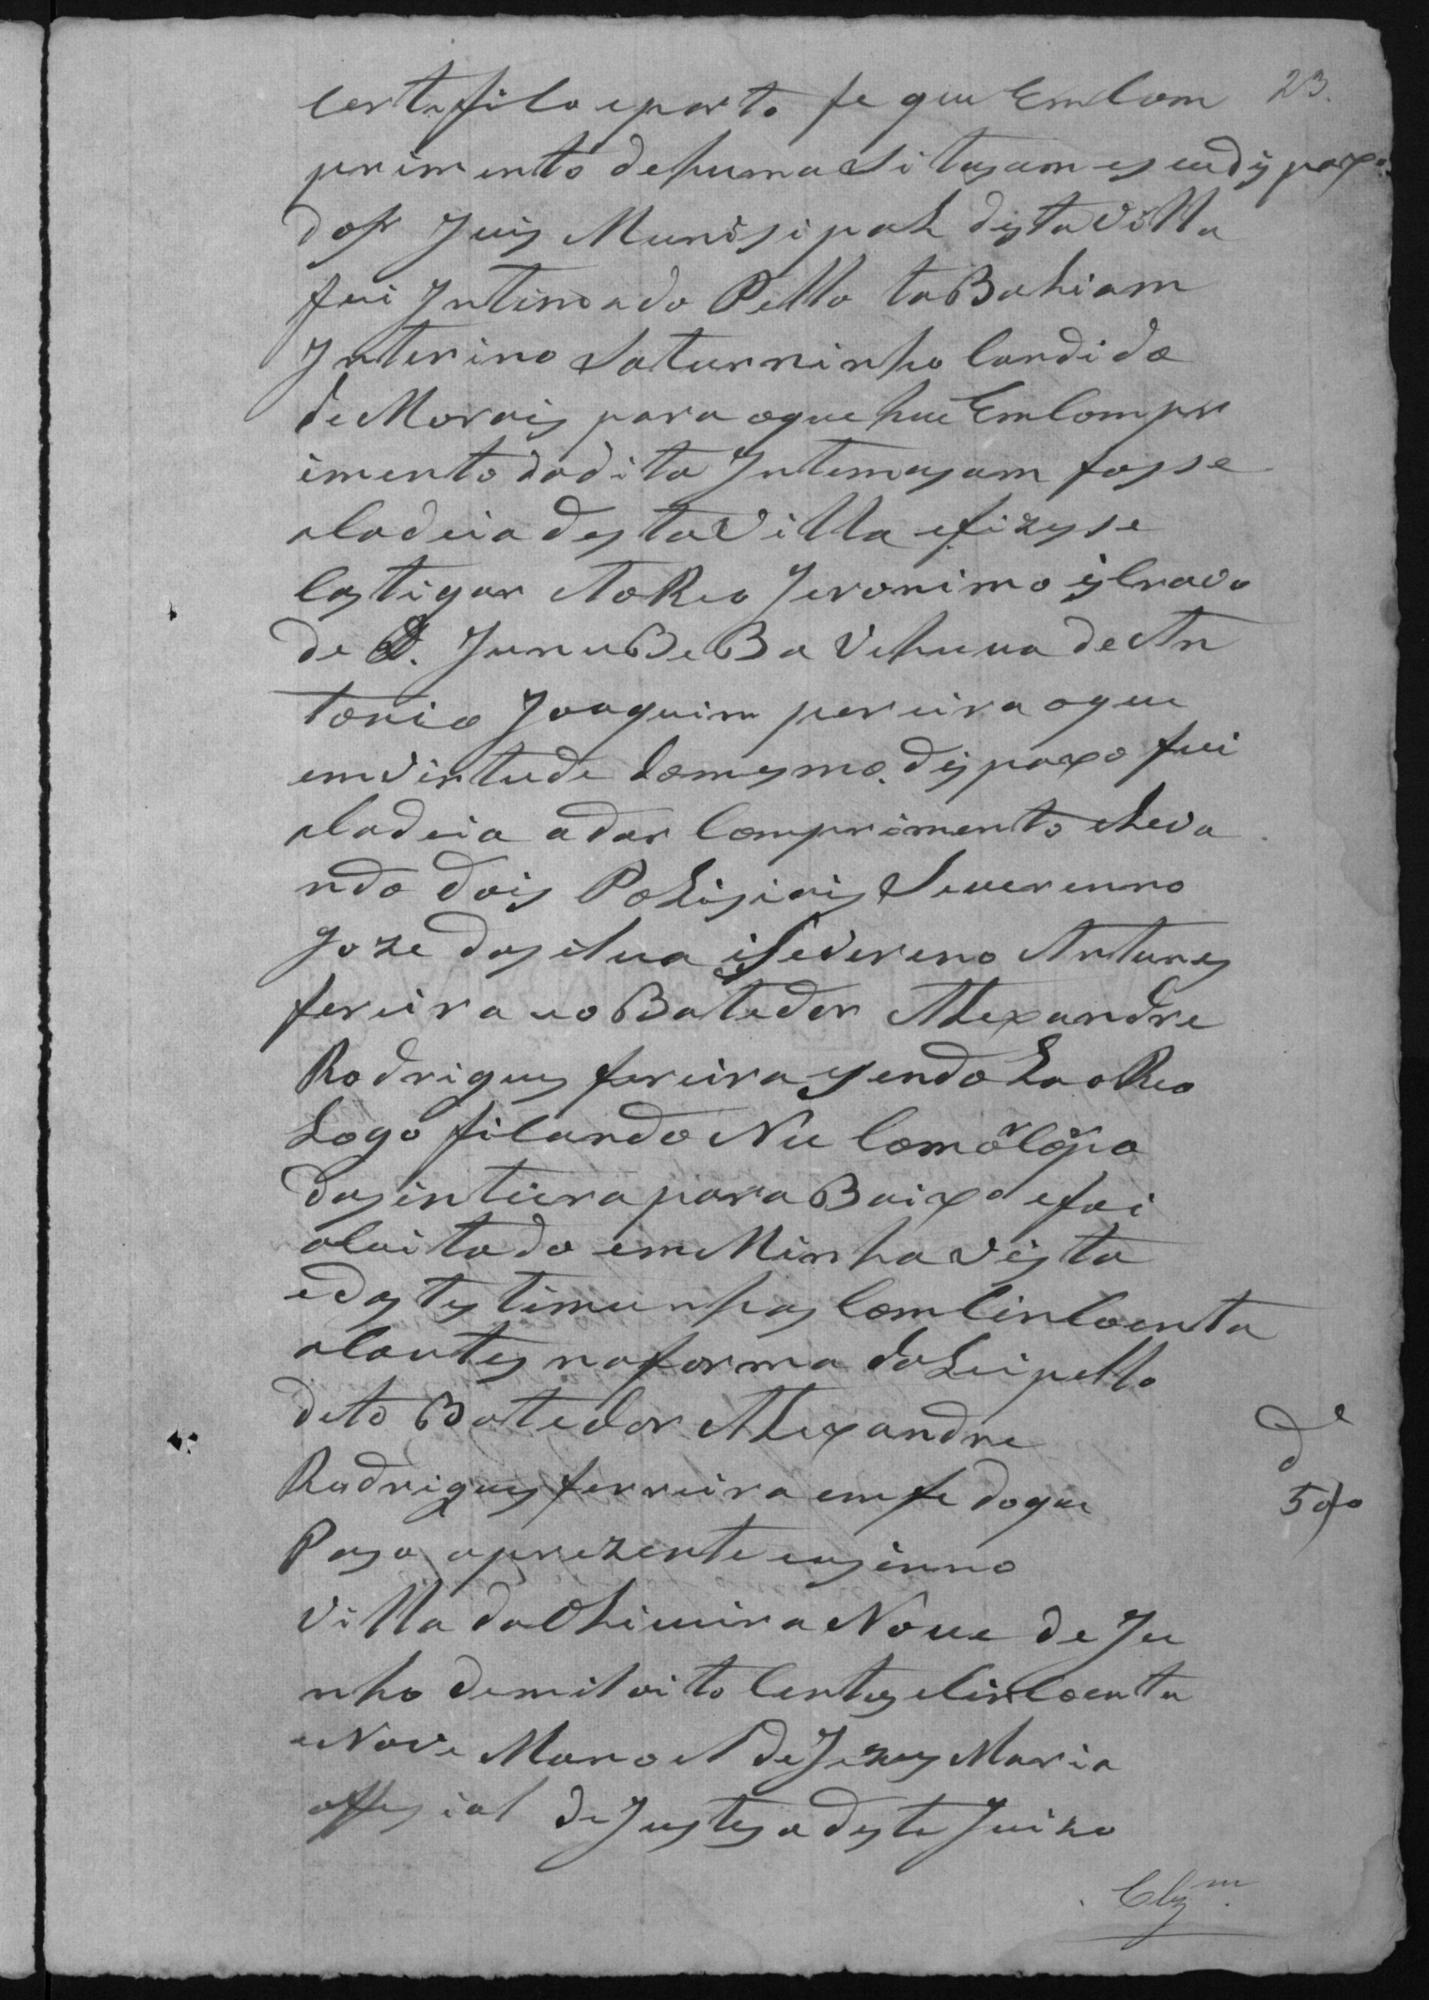 23.
Certefico eporto fe que Emcom
primento dehuma Sitasam es eudispaxo
dosr Juis Munisipal destaVilla
fui Intimado Pello taBahiam
Interino Saturninho Candido
deMorais para oque hue Emcompr
imento dadita Intemasam fosse
aCadeia destaVilla efizese
Castigar AoReo Jeronimo esCravo
de D. JunuBeBa Vehuva deAn
tonio Joaquim pereira oque
emvirtude domesmo dispaxo fui
aCadeia adar Comprimento eLeva
ndo dois PoLisiais Severenno
Joze dasilua iSedereno Antunes
fereira eo Batedor ALexandre
Rodrigues fereira sendo La oReo
Logo ficando Nu Com oCorpo
dasinteira para Baixo efoi
aCoitado em Minha vista
edastestimunhas ComCinCoenta
aCoutes naforma daLei pello
deto Batedor ALexandre
Rodrigues ferreira emfe doque
Paso aprezente easinno
Villa daOLiueira Noue de Ju
nho demiloito Centos eCinCoenta
eNove Manoel deJezus Maria
offesial deJustesa deste Juizo
De
500